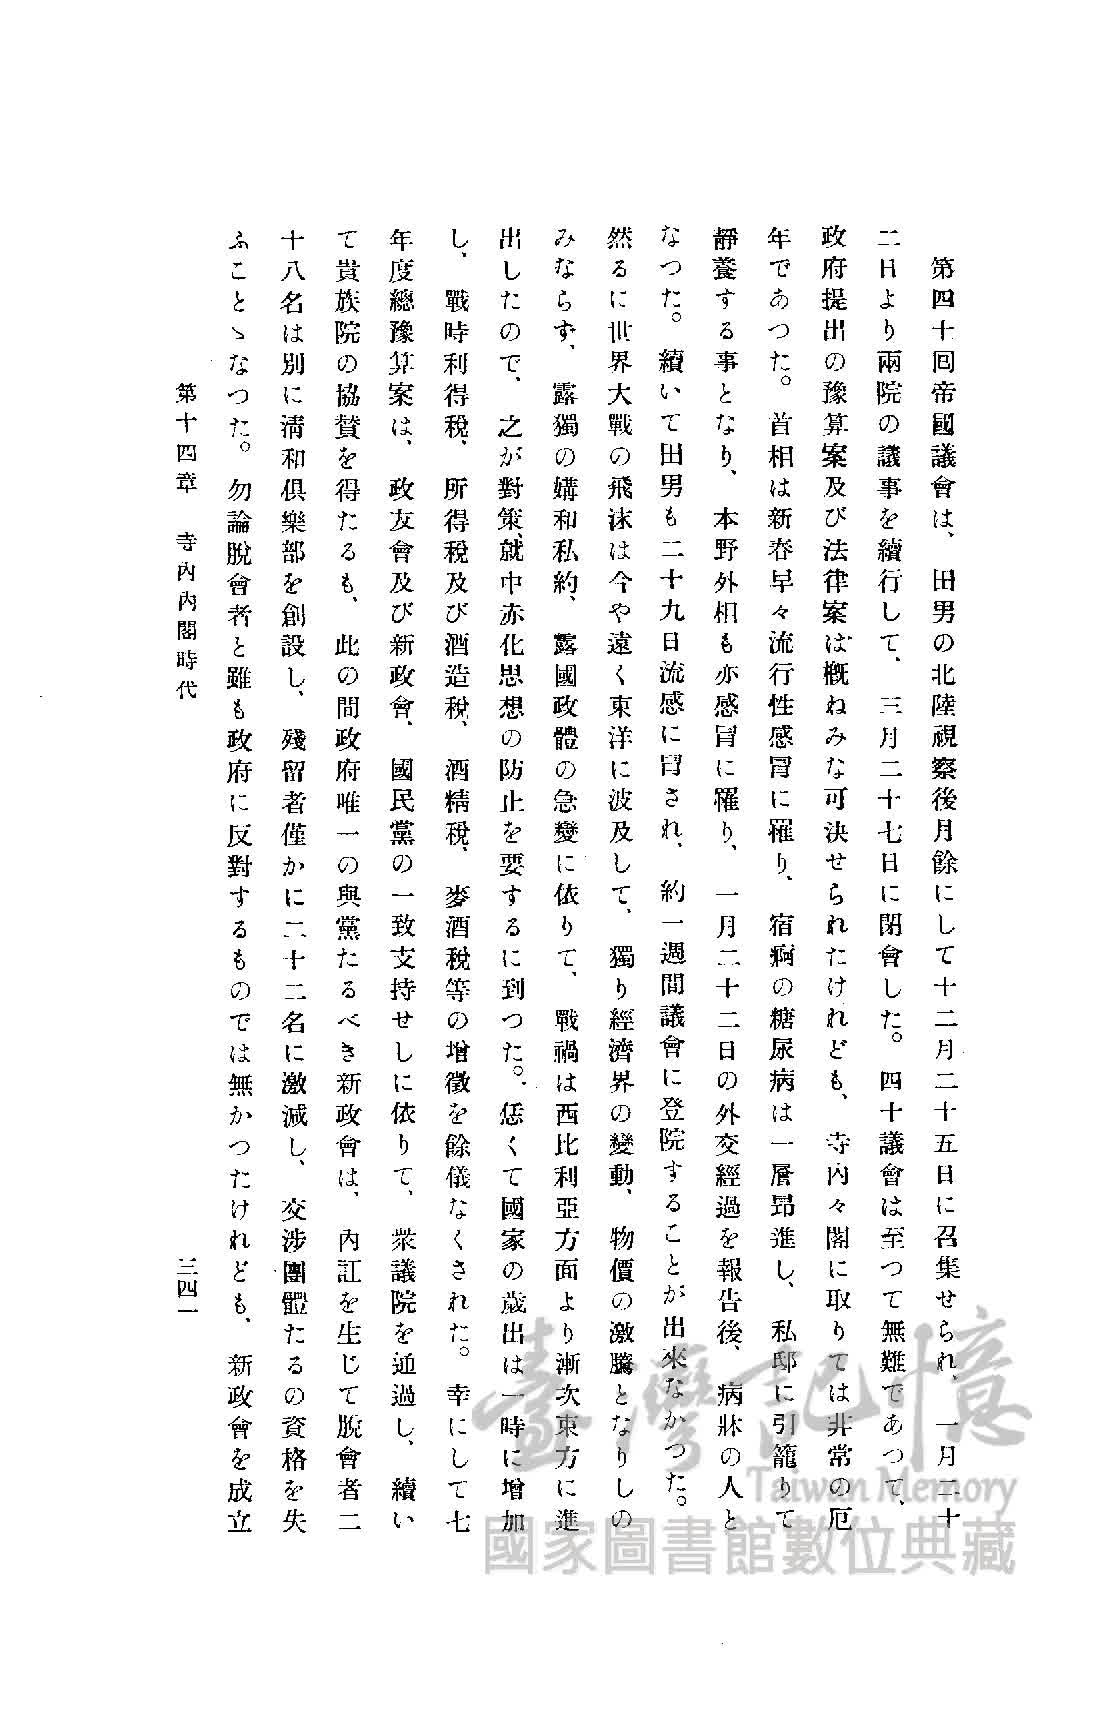 第四十回帝國議會は、田男の北陸視察後月餘にして十二月二十五日に召集せられ、一月二十
二日より兩院の議事を續行して、三月二十七日に閉會した。四十議會は至つて無難であつて、
政府提出の豫算案及び法律案は概ねみな可決せられたけれども、寺内々閣に取りては非常の厄
年であつた。首相は新春早々流行性感冒に罹り、宿痾の糖尿病は一層昻進し、私邸に引籠りて
靜養する事となり、本野外相も亦感冒に罹り、一月二十二日の外交經過を報告後、病牀の人と
なつた。續いて田男も二十九日流感に冒され、約一週間議會に登院することが出來なかつた。
然るに世界大戰の飛沫は今や遠く東洋に波及して、獨り經濟界の變動、物價の激騰となりしの
みならず、露獨の媾和私約、露國政體の急變に依りて、戰禍は西比利亞方面より漸次東方に進
出したので、之が對策、就中赤化思想の防止を要するに到つた。恁くて國家の歳出は一時に增加
し、戰時利得稅、所得稅及び酒造稅、酒精稅、麥酒稅等の增徵を餘儀なくされた。幸にして七
年度總豫算案は、政友會及び新政會、國民黨の一致支持せしに依りて、衆議院を通過し、續い
て貴族院の協贊を得たるも、此の間政府唯一の與黨たるべき新政會は、內訌を生じて脫會者二
十八名は別に淸和俱樂部を創設し、殘留者僅かに二十二名に激減し、交涉團體たるの資格を失
ふことゝなつた。勿論脫會者と雖も政府に反對するものでは無かつたけれども、新政會を成立
第十四章 寺內內閣時代 三四一
臺灣記憶
Taiwan Memory
國家圖書館數位典藏